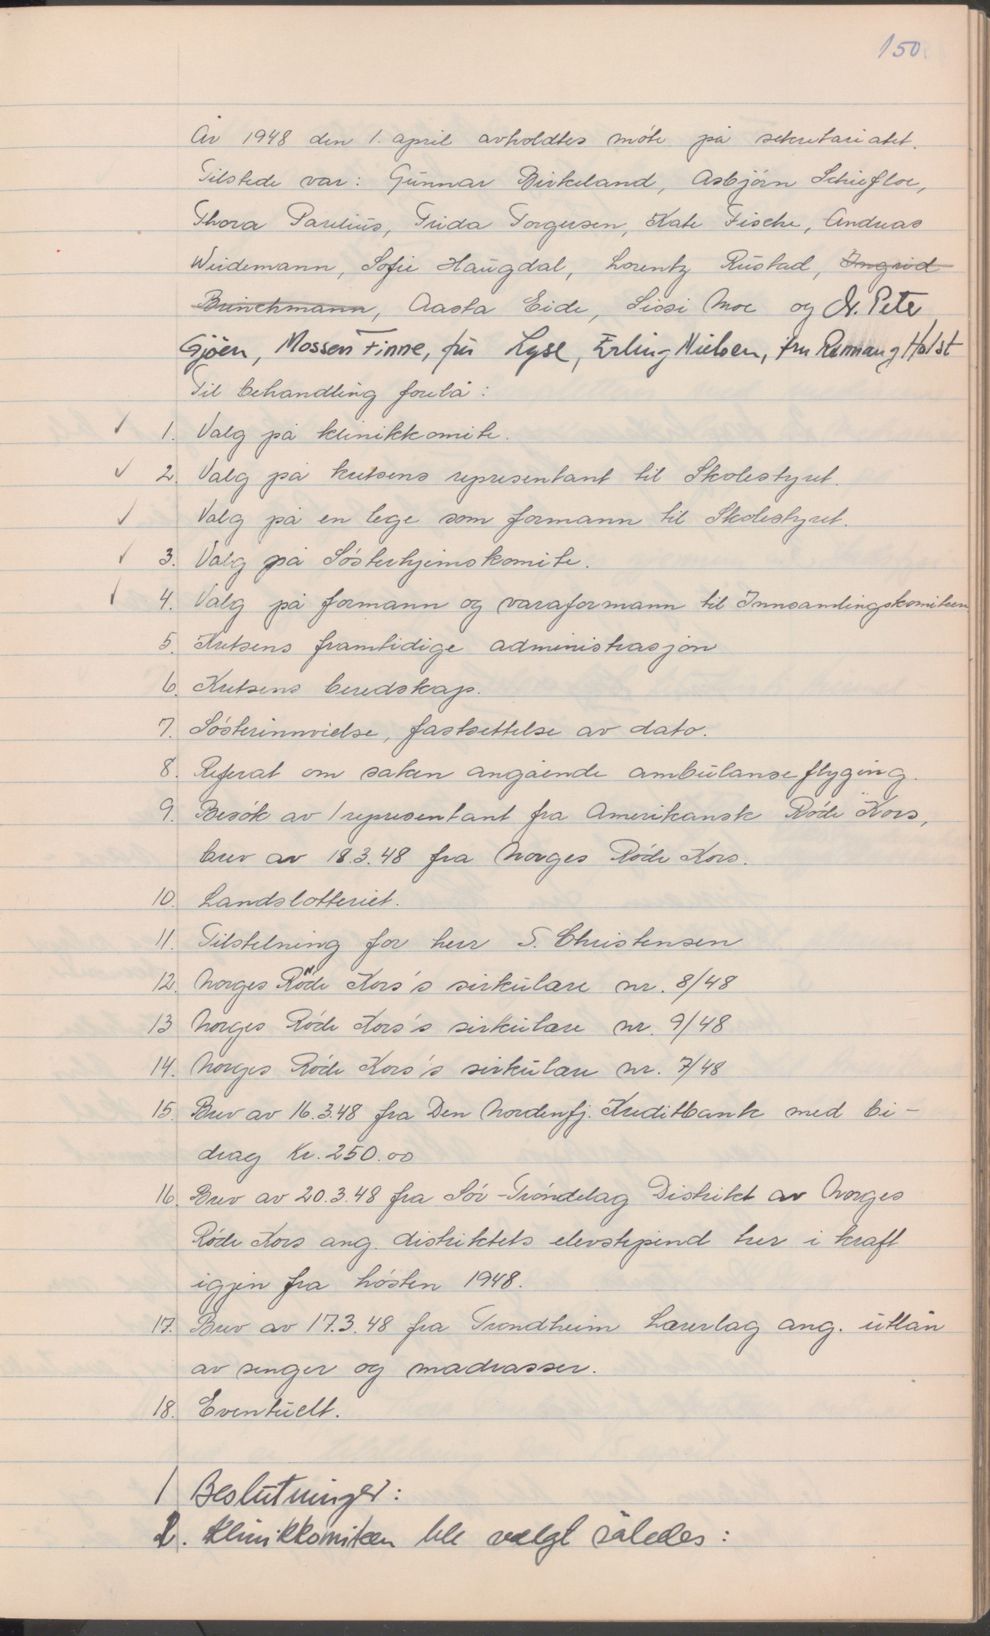 150
År 1948 den 1. april avholdtes møte på sekretariatet.
Tilstede var: Gunnar Birkeland, Asbjørn Schiefloe,
Thora Paulius, Frida Torgersen, Kate Fische, Andreas
Wiedemann, Sofie Haugdal, Lorentz Rustad, Ingrid
Brinchmann, Aasta Eide, Sissi Moe og Dr. Peter
Gjøen, Mossen Finne, fru Lyse, Erling Nielsen, fru Ramang Holst
Til behandling forelå:
✓ 1. Valg på klinikkomite.
✓ 2. Valg på kretsens representant til Skolestyret.
✓ Valg på en lege som formann til Skolestyret.
✓ 3. Valg på Søsterhjemskomite.
✓ 4. Valg på formann og varaformann til Innsamlingskomiteen
5. Kretsens framtidige administrasjon
6. Kretsens beredskap.
7. Søsterinnvielse, fastsettelse av dato.
8. Referat om saken angående ambulanseflyging.
9. Besøk av 1 representant fra Amerikansk Røde Kors,
brev av 18.3.48 fra Norges Røde Kors.
10. Landslotteriet.
11. Tilstelning for herr S. Christensen
12. Norges Røde Kors's sirkulære nr. 8/48
13 Norges Røde Kors's sirkulære nr. 9/48
14. Norges Røde Kors's sirkulære nr. 7/48
15. Brev av 16.3.48 fra Den Nordenfj. Kreditbank med bi-
drag kr. 250.00
16. Brev av 20.3.48 fra Sør-Trøndelag Distrikt av Norges
Røde Kors ang. distriktets elevstipend trer i kraft
igjen fra høsten 1948.
17. Brev av 17.3.48 fra Trondheim Lærerlag ang. utlån
av senger og madrasser.
18. Eventuelt.
1 Beslutninger:
2. Klinikkomiteen ble valgt således: